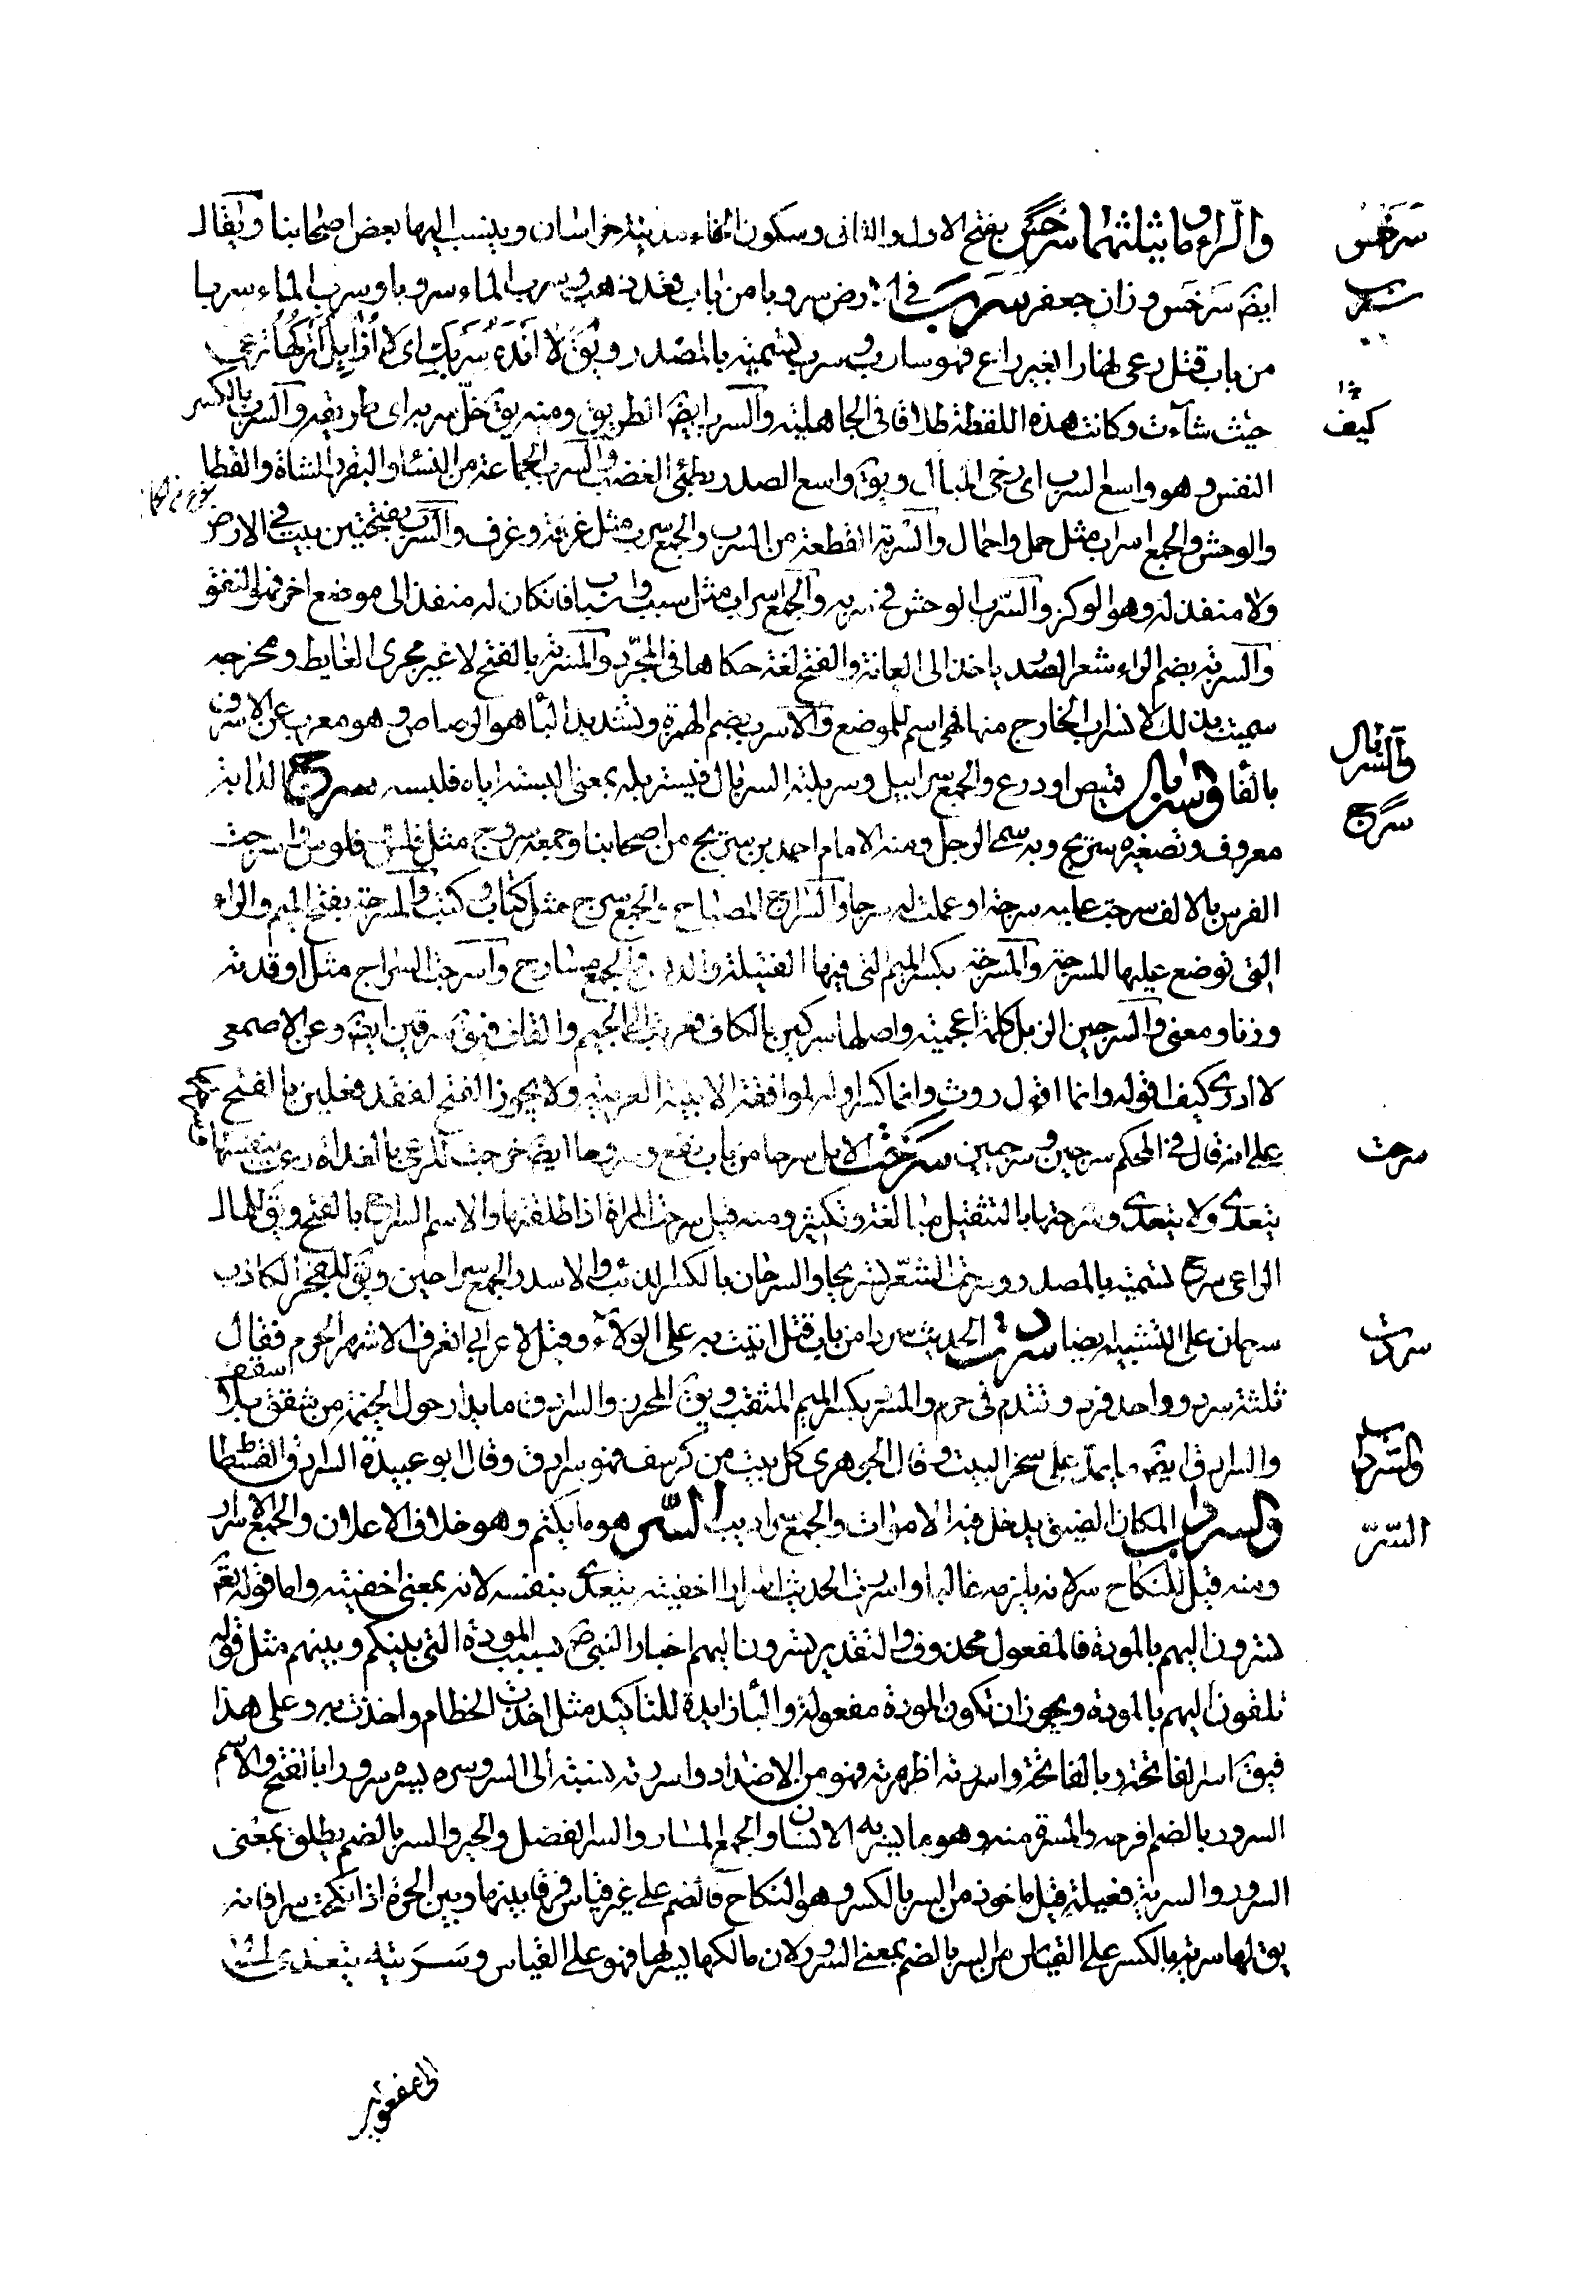 والراء وما يثلثهما سرخس بفتح الاول والثانى وسكون الخاء مدينة خراسان وينسب اليها بعض اصحابنا ويقال
سرخس
ايضا سرخس وزان جعفر سرب فى الارض سروبا من باب قعد ذهب وسرب الماء سروبا وسرب الماء سربا
سرب
من باب قتل رعى نهارا بغير راع فهو سارب وسرب تسمية بالمصدر ويق لا انده سربك اى لا ارد ابلك اتركها ترعى
حيث شاءت وكانت هذه اللفظة طلاقا فى الجاهلية والسرب ايضا الطريق ومنه يق خل سربه اى طريقه والسرب بالكسر
كيف
النفس وهو واسع السرب اى رخى البال ويق واسع الصدر بطئى الغضب والسرب الجماعة من النساء والبقر والشاة والقطا
والوحش والجمع اسراب مثل حمل واحمال والسربة القطعة من السرب والجمع سرب مثل غرفة وغرف والسرب بفتحتين بيت فى الارض
ولا منفذ له وهو الوكر والسرب الوحش فى سربه والجمع اسراب مثل سبب واسباب فان كان له منفذ الى موضع اخر فهو النفق
والمسربة بضم الراء شعر الصدر ياخذ الى العانة والفتح لغة حكاها فى المجرد والمسربة بالفتح لا غير مجرى الغايط ومخرجه
سميت بذلك لانسراب الخارج منها فهى اسم للموضع والاسرب بضم الهمزة وتشديد الباء هو الرصاص وهو معرب عن الاسرف
بالفاء والسربال قميص او درع والجمع سرابيل وسربلته السربال فتسربله بمعنى البسته اياه فلبسه سرج الدابة
والسربال
معروف وتصغيره سريج وبه سمى الرجل ومنه الامام احمد بن سريج من اصحابنا وجمعه سروج مثل فلس وفلوس واسرجت
سرج
الفرس بالالف سرجت عليه سرجه او عملت له سرجا والسراج المصباح والجمع سرج مثل كتاب وكتب والمسرجة بفتح الميم والراء
التى توضع عليها المسرجة والمسرجة بكسر الميم التى فيها الفتيلة والدهن والجمع مسارج واسرجت السراج مثل اوقدته
وزنا ومعنى والسرجين الزبل كلمة اعجمية واصلها سركين بالكاف فعربت الى الجيم والقاف فيق سرقين ايضا وعن الاصمعى
لا ادرى كيف اقوله وانما اقول روث وانما كسر اوله لموافقة الابنية العربية ولا يجوز الفتح لفقد فعلين بالفتح
على انه قال فى المحكم سرجين وسرجين سرحت الابل سرحا من باب نفع وسروحا ايضا خرجت للرعى بالغداة رعت بنفسها
سرحت
يتعدى ولا يتعدى وسرحتها بالتثقيل مبالغة وتكثير ومنه قيل سرحت المراة اذا طلقتها والاسم السراح بالفتح ويق للمال
الراعى سرح تسمية بالمصدر وسرحت الشعر تسريحا والسرحان بالكسر الذئب والاسد والجمع سراحين ويق للفجر الكاذب
سرحان على التشبيه ايضا سردت الحديث سردا من باب قتل اتيت به على الولاء وقيل لاعرابى اتعرف الاشهر الحرم فقال
سردت
ثلثة سرد وواحد فرد وتقدم فى حرم والمسرد بكسر الميم المثقب ويق المخرز والسرادق ما يدار حول الخيمة من شقق بلا سقف
والسرادق ايضا ما يمد على صحن البيت وقال الجوهرى كل بيت من كرسف فهو سرادق وقال ابو عبيدة السرادق الفسطاط
والسرداب
والسرداب المكان الضيق يدخل فيه الاموات والجمع سراديب السر هو ما يكتم وهو خلاف الاعلان والجمع الاسرار
السر
ومنه قيل للنكاح سر لانه يلزمه غالبا واسررت الحديث اسرارا اخفيته يتعدى بنفسه لانه بمعنى اخفيته واما قوله تعالى
تسرون اليهم بالمودة فالمفعول محذوف والتقدير تسرون اليهم اخبار النبى ص بسبب المودة التى بينكم وبينهم مثل قوله
تلقون اليهم بالمودة ويجوز ان تكون المودة مفعولة والباء زايدة للتاكيد مثل اخذت الخطام واخذت به وعلى هذا
فيق اسر الفاتحة وبالفاتحة واسررته اظهرته فهو من الاضداد واسررته نسبته الى السر وسره يسره سرورا بالفتح والاسم
السرور بالضم افرحه والمسرة منه وهو ما يسر به الانسان والجمع المسار والسراء الفضل والخير والسر بالضم يطلق بمعنى
السرور والسرية فعيلة قيل ماخوذة من السر بالكسر وهو النكاح فالضم على غير قياس فرقا بينها وبين الحرة اذا نكحت سرا فانه
يق لها سرية بالكسر على القياس من السر بالضم بمعنى السرور لان مالكها يسر بها فهو على القياس وسريته يتعدى
الى مفعولين